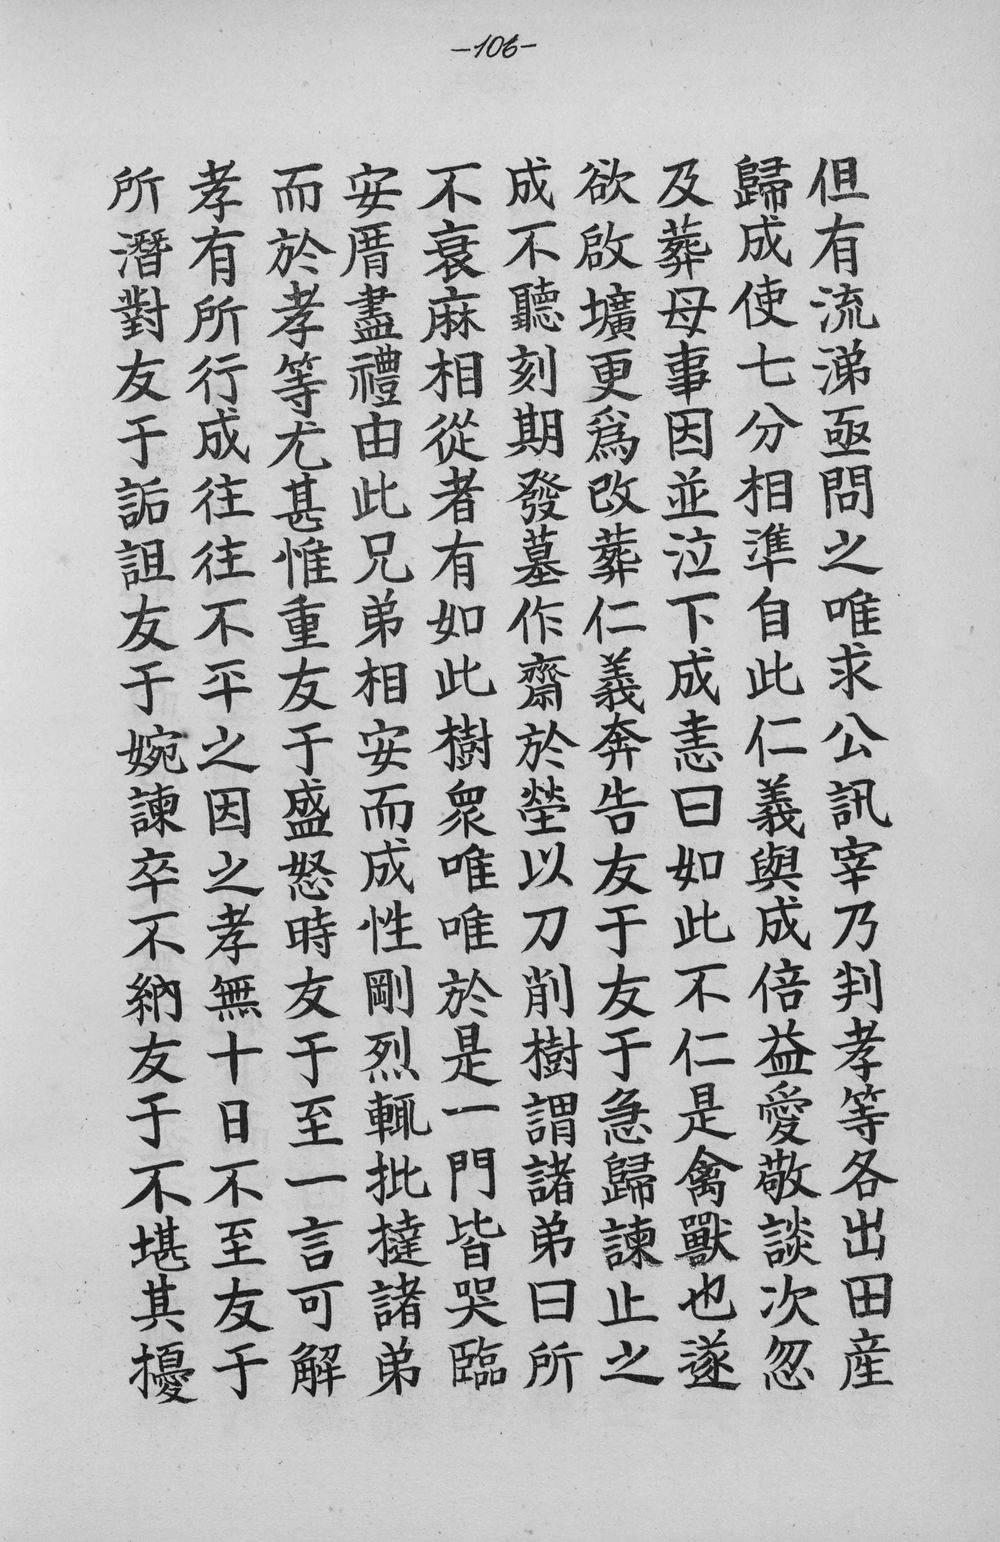 -106-
但有流涕亟問之唯求公訊宰乃判孝等各出田産
歸成使七分相準自此仁義與成倍益愛敬談次忽
及葬母事因並泣下成恚曰如此不仁是禽獸也遂
欲啟壙更爲改葬仁義奔告友于友于急歸諫止之
成不聽刻期發墓作齋於塋以刀削樹謂諸弟曰所
不衰麻相從者有如此樹衆唯唯於是一門皆哭臨
安厝盡禮由此兄弟相安而成性剛烈輒批撻諸弟
而於孝等尤甚惟重友于盛怒時友于至一言可解
孝有所行成往往不平之因之孝無十日不至友于
所潛對友于詬詛友于婉諫卒不納友于不堪其擾